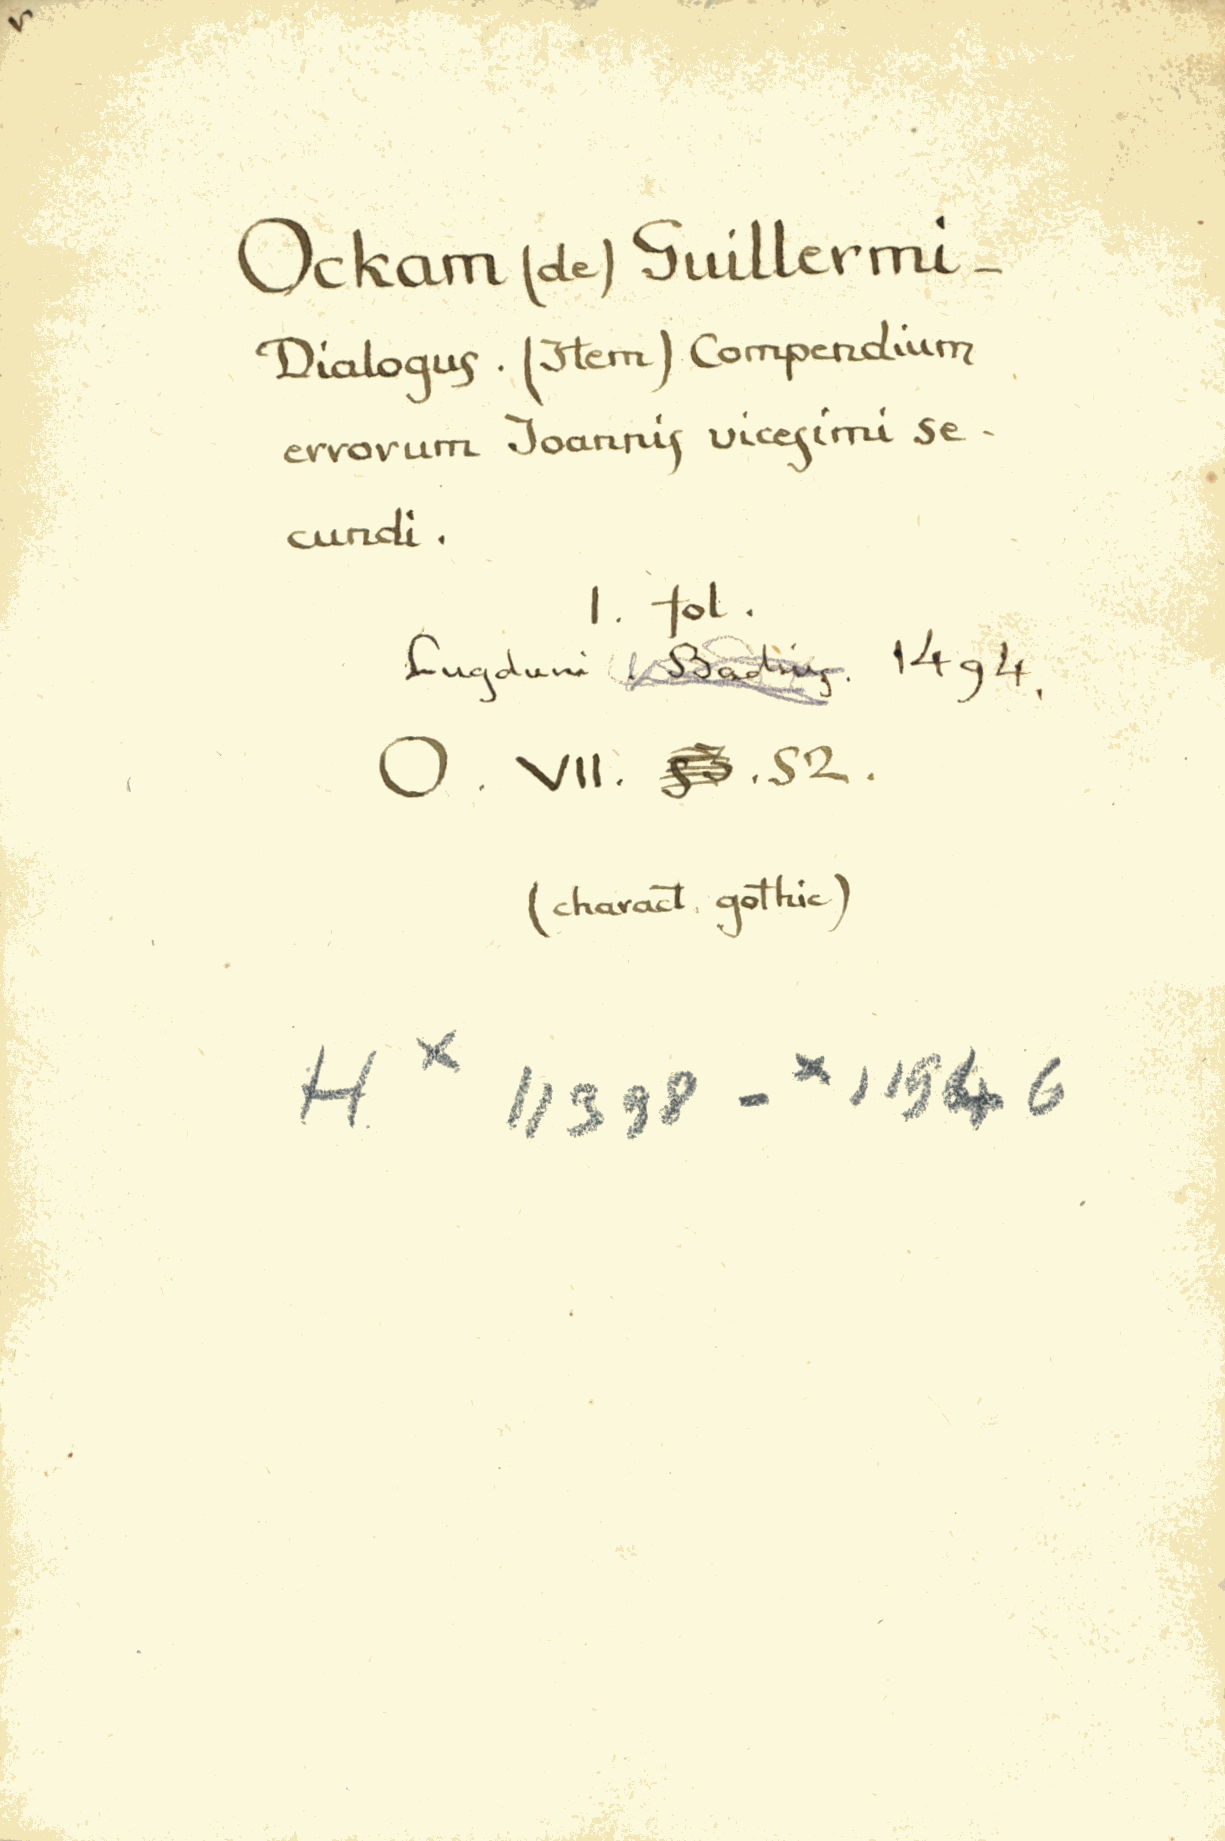 Ockam (de) Guillermi -
Dialogus. (Item) Compendium
errorum Joannis vicesimi se-
cundi.
1. fol.
Lugduni I. Badius. 1494.
O. VII. 53. 52.
(charact. gothic)
H x 11398 - x 11946